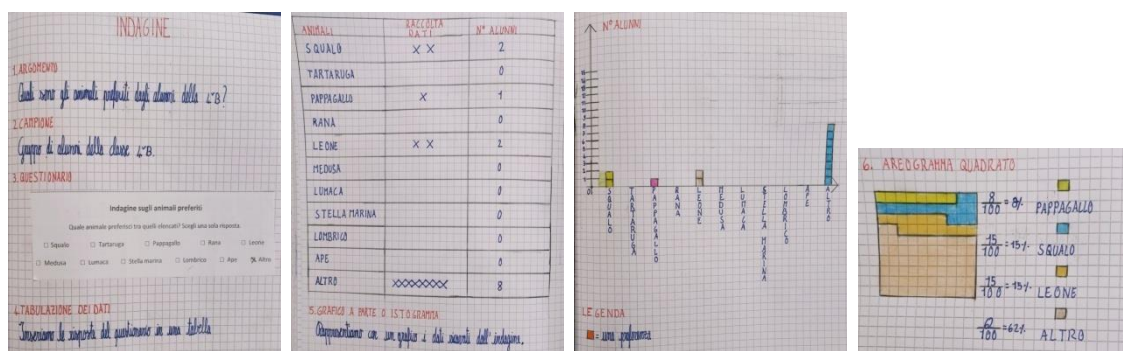 INDAGINE
1. ARGOMENTO
Quali sono gli animali preferiti dagli alunni della 4ªB?
2. CAMPIONE
Gruppo di alunni della classe 4ªB.
3. QUESTIONARIO
Indagine sugli animali preferiti
Quale animale preferisci tra quelli elencati? Scegli una sola risposta.
Squalo Tartaruga Pappagallo Rana Leone
Medusa Lumaca Stella marina Lombrico Ape Altro
4. TABULAZIONE DEI DATI
Inseriamo le risposte del questionario in una tabella
ANIMALI RACCOLTA DATI N° ALUNNI
SQUALO X X 2
TARTARUGA 0
PAPPAGALLO X 1
RANA 0
LEONE X X 2
MEDUSA 0
LUMACA 0
STELLA MARINA 0
LOMBRICO 0
APE 0
ALTRO XXXXXXXX 8
5. GRAFICO A PARTE O ISTOGRAMMA
Rappresentiamo con un grafico i dati ricavati dall'indagine.
N° ALUNNI
SQUALO
TARTARUGA
PAPPAGALLO
RANA
LEONE
MEDUSA
LUMACA
STELLA MARINA
LOMBRICO
APE
ALTRO
LEGENDA
= una preferenza
6. AREOGRAMMA QUADRATO
8/100 = 8% PAPPAGALLO
15/100 = 15% SQUALO
15/100 = 15% LEONE
/100 = 62% ALTRO